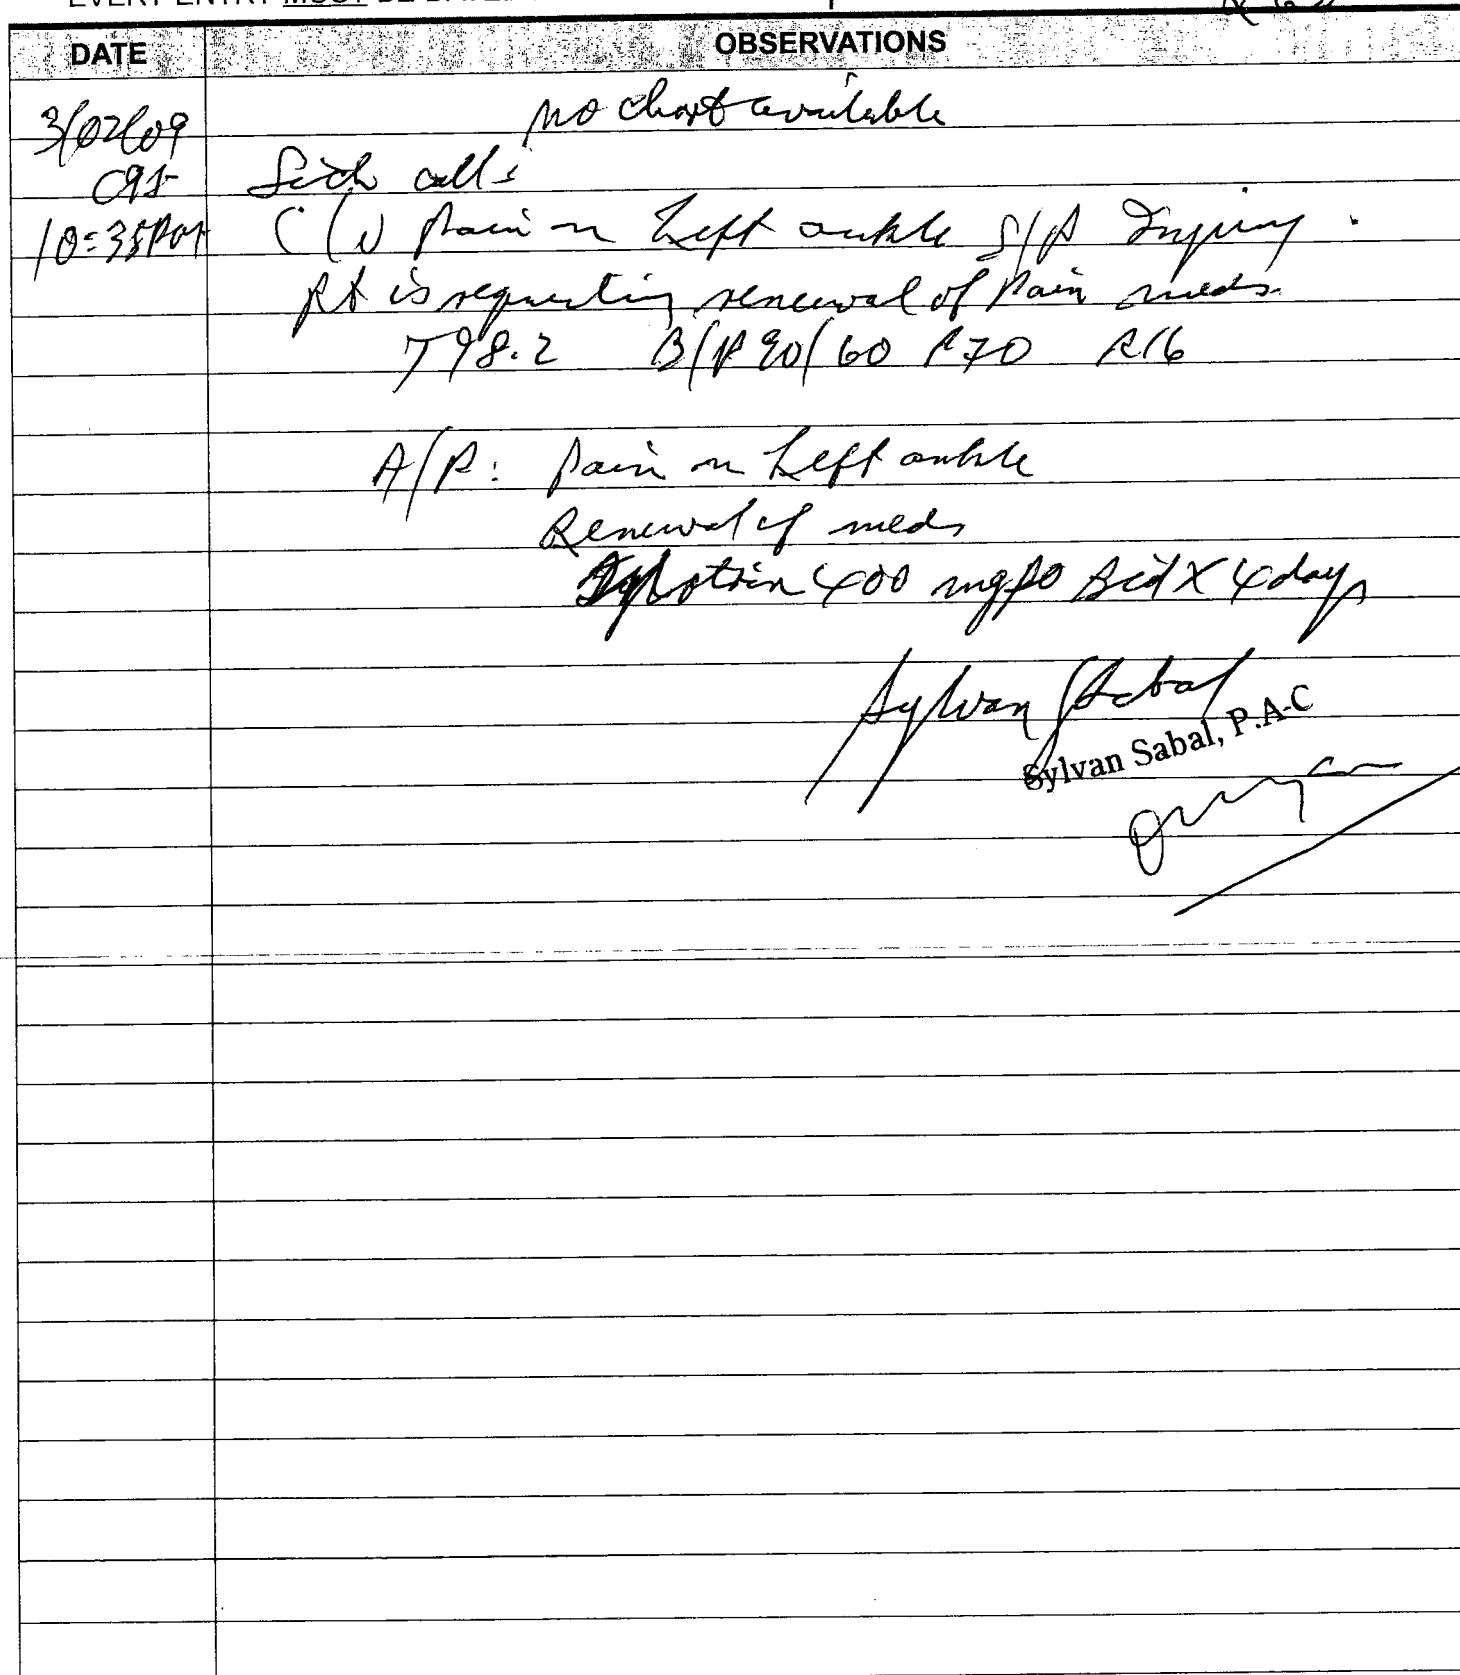 EVERY ENTRY MUST BE DATED
DATE OBSERVATIONS
no chart available
3/02/09
C95 Sick call:
10:35PM C/o Pain on Left ankle S/P Injury.
Pt is requesting renewal of Pain meds.
T98.2 B/P 90/60 P70 R16
A/P: Pain on Left ankle
Renewal of meds
Motrin 400 mg PO Bid X 4 days
Sylvan Sabal
Sylvan Sabal, P.A-C